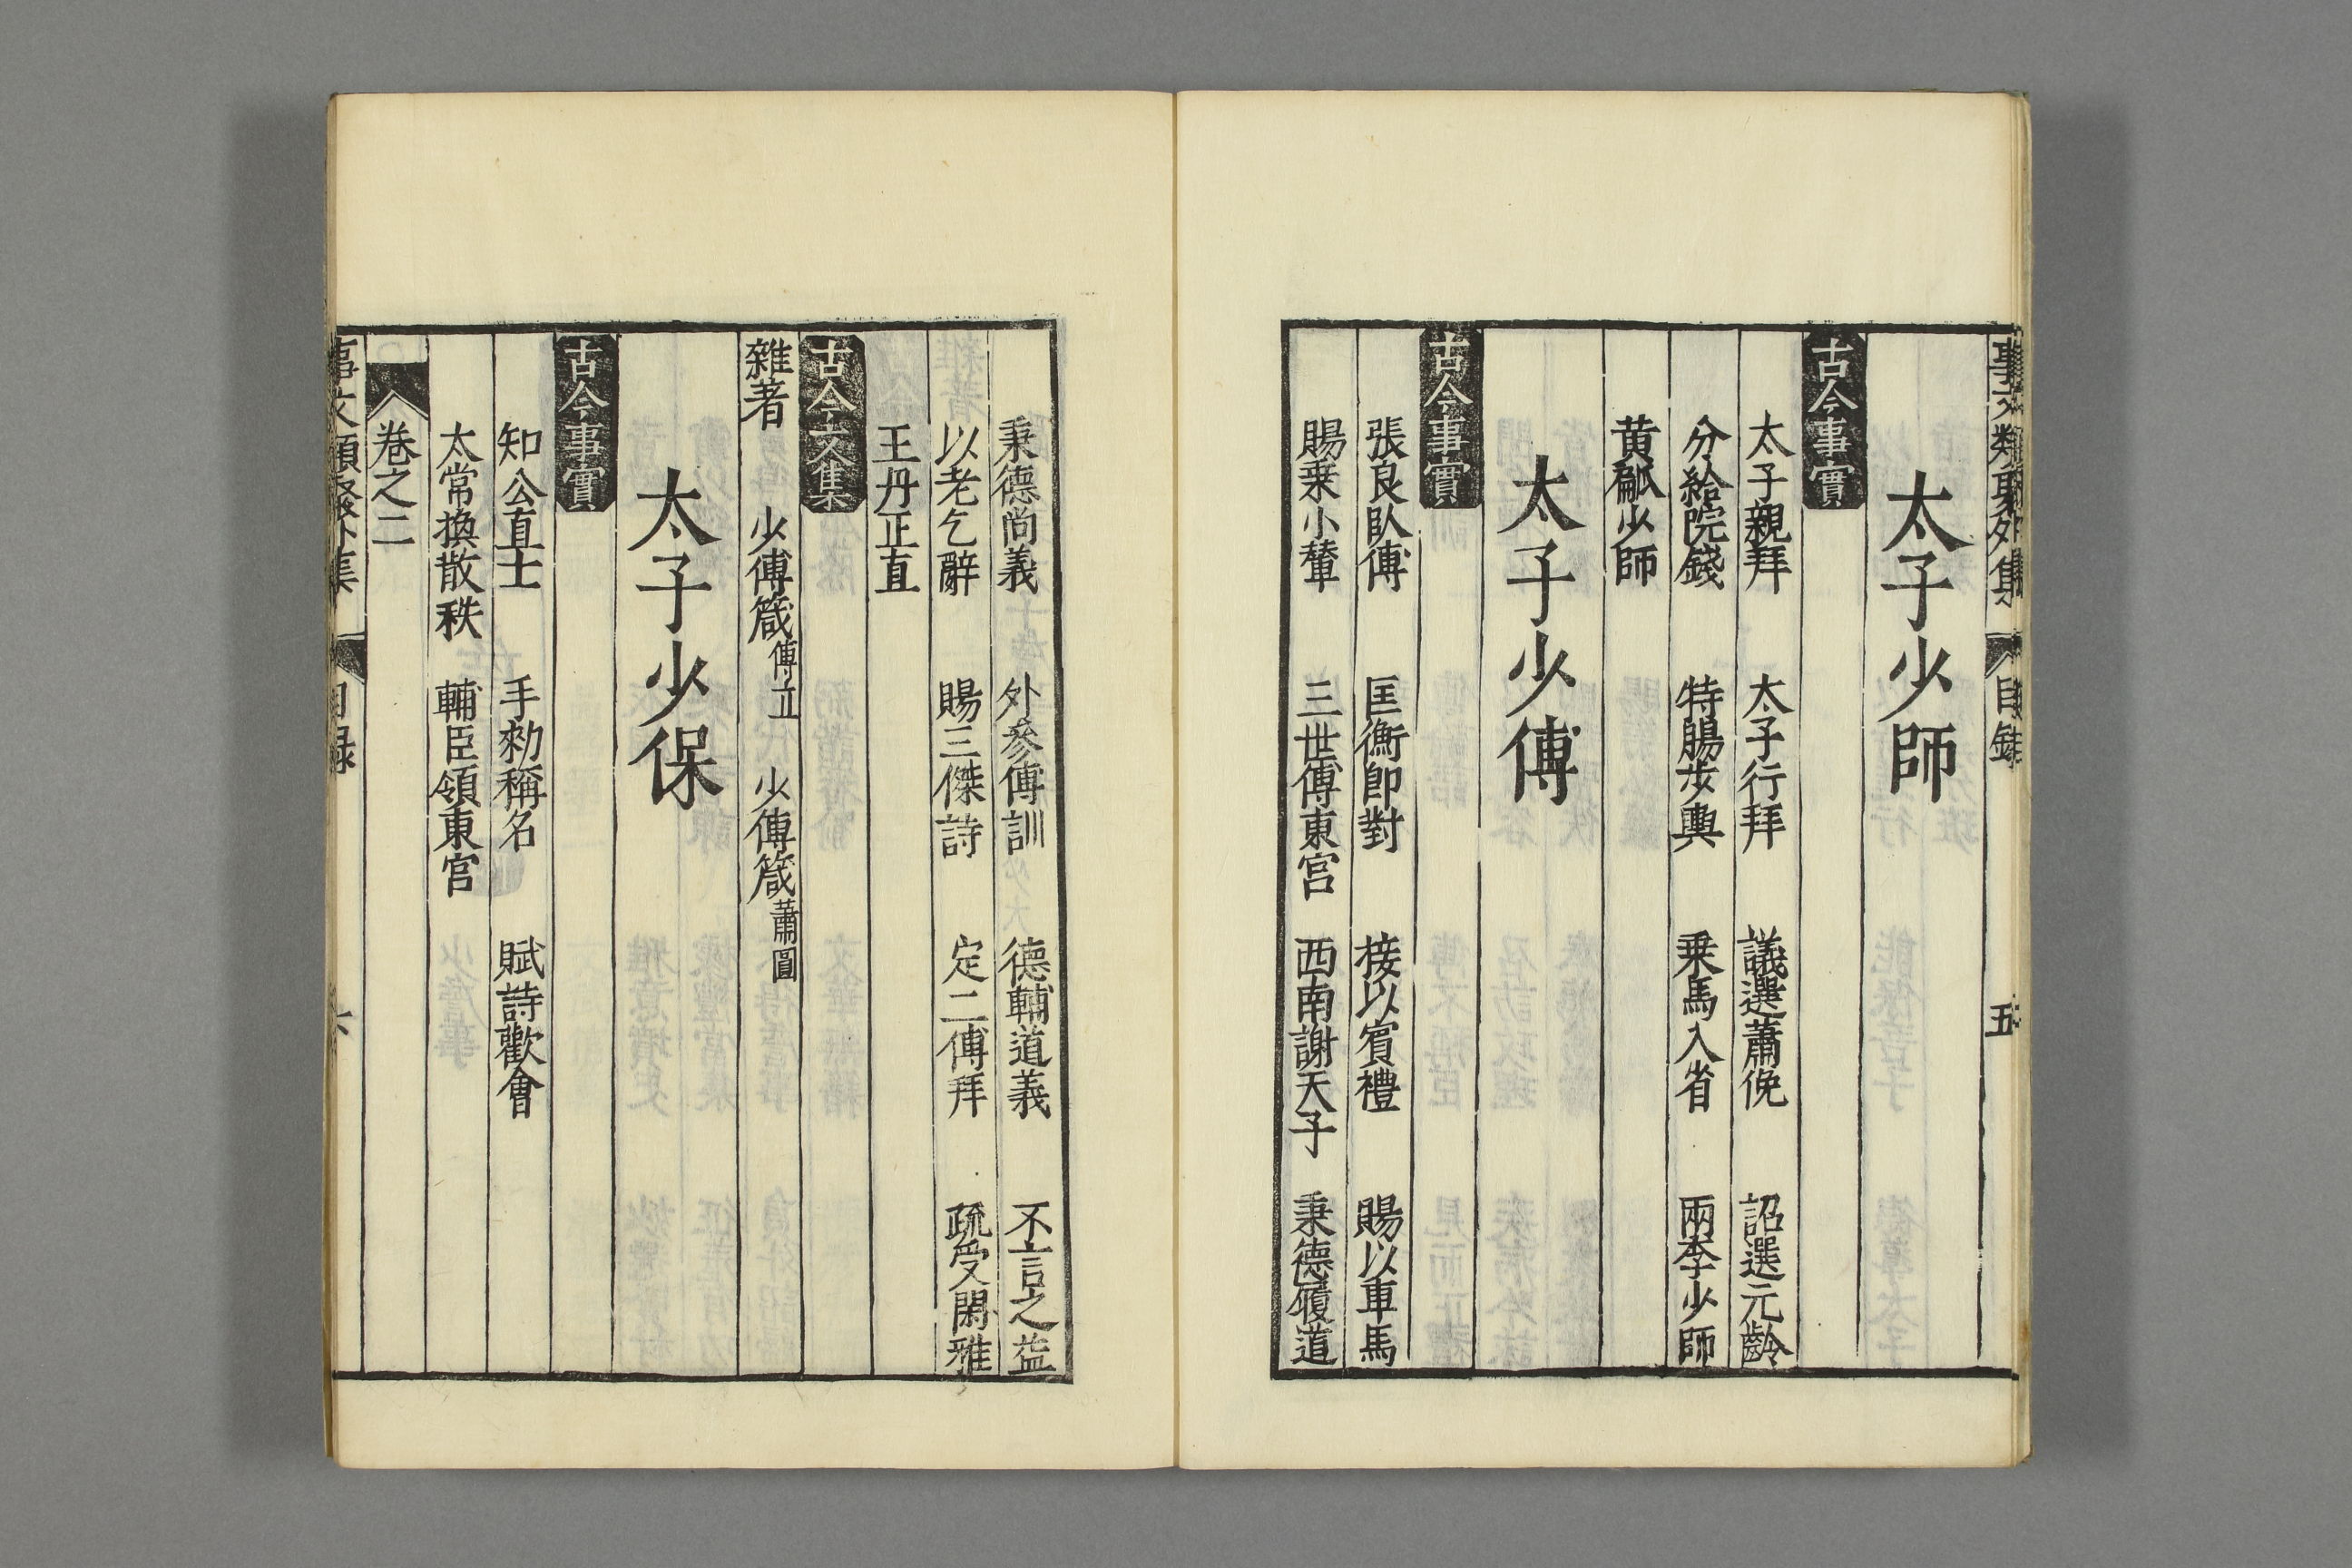 事文類聚外集 目録 五
太子少師
古今事實
太子親拜 太子行拜 議選蕭俛 詔選元齡
分給院錢 特賜步輿 乗馬入省 兩李少師
黄少師
太子少傅
古今事實
張良臥傅 匡衡即對 接以賓禮 賜以車馬
賜乗小輦 三世傅東宮 西南謝天子 秉德履道
秉德尚義 外參傅訓 德輔道義 不言之益
以老乞辭 賜三傑詩 定二傅拜 疏受閑雅
王丹正直
古今文集
雜著 少傅箴傅立 少傅箴蕭圓
太子少保
古今事實
知公直士 手勑稱名 賦詩歡會
太常換散秩 輔臣領東宮
卷之二
事文類聚外集 目録 六